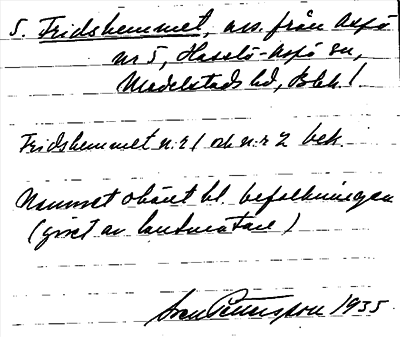 5. Fridshemmet, avs. från Aspö
nr 5, Hasslö-Aspö sn,
Medelstads hd, Blek. l.
Fridshemmet n:r 1 och n:r 2 beb.
Namnet okänt bl. befolkningen
(givet av lantmätare)
Sven Pettersson 1935